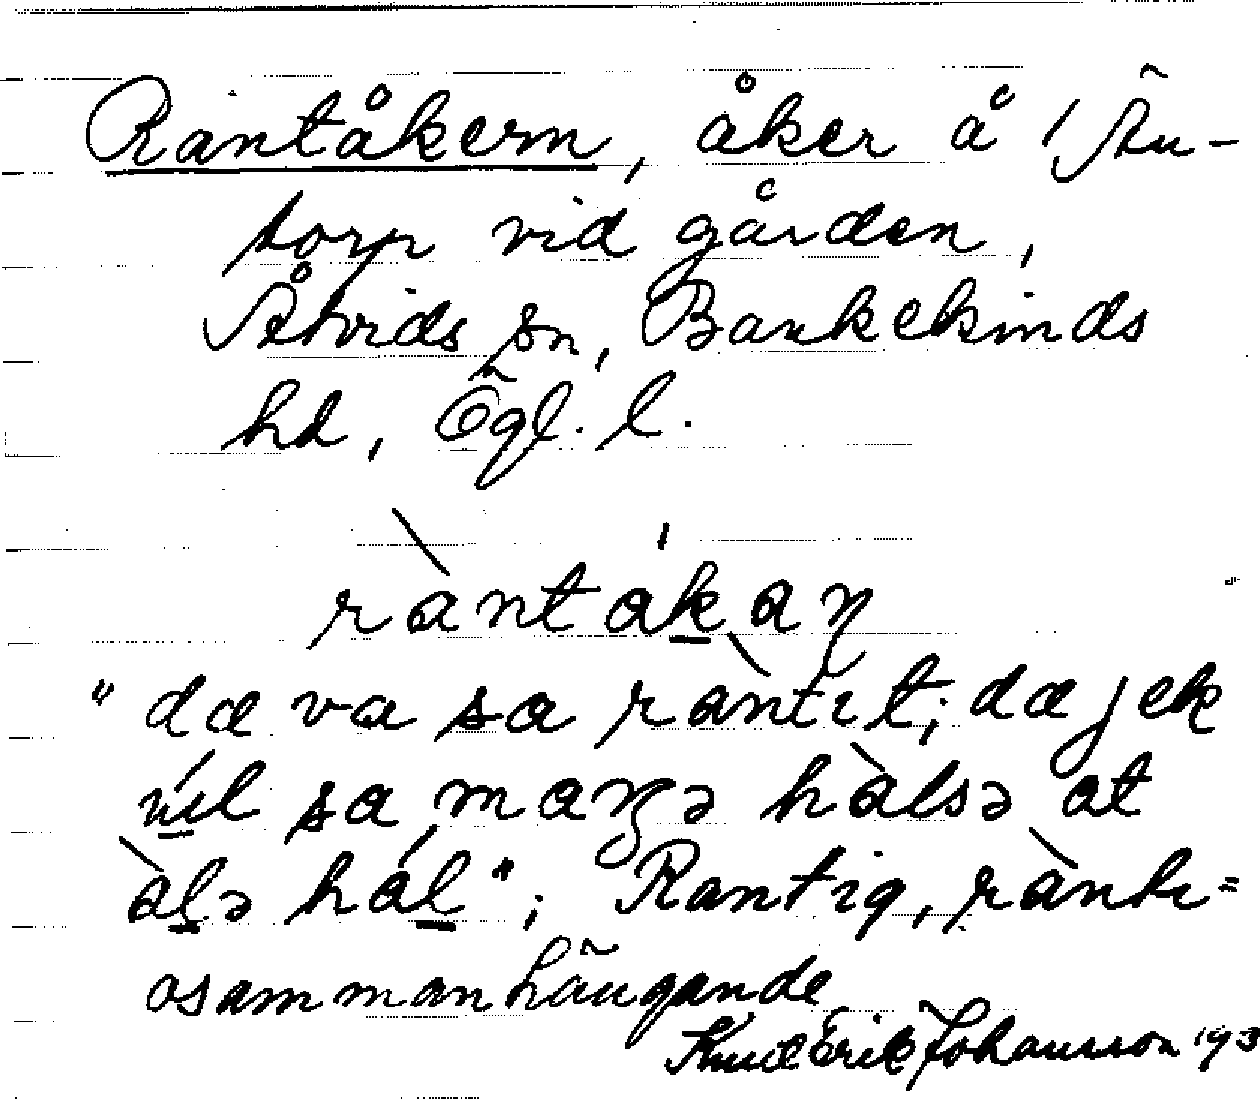 Rantåkern, åker å Ån-
torp vid gården,
Åtvids sn, Bankekinds
hd, Ögl. l.
ràntákaɳ
"dæ va sa ràntɪt; dæ jek
sa maŋə hàlsə at
àlə hál"; Rantig, rànti=
osammanhängande
Knut Erik Johansson 193